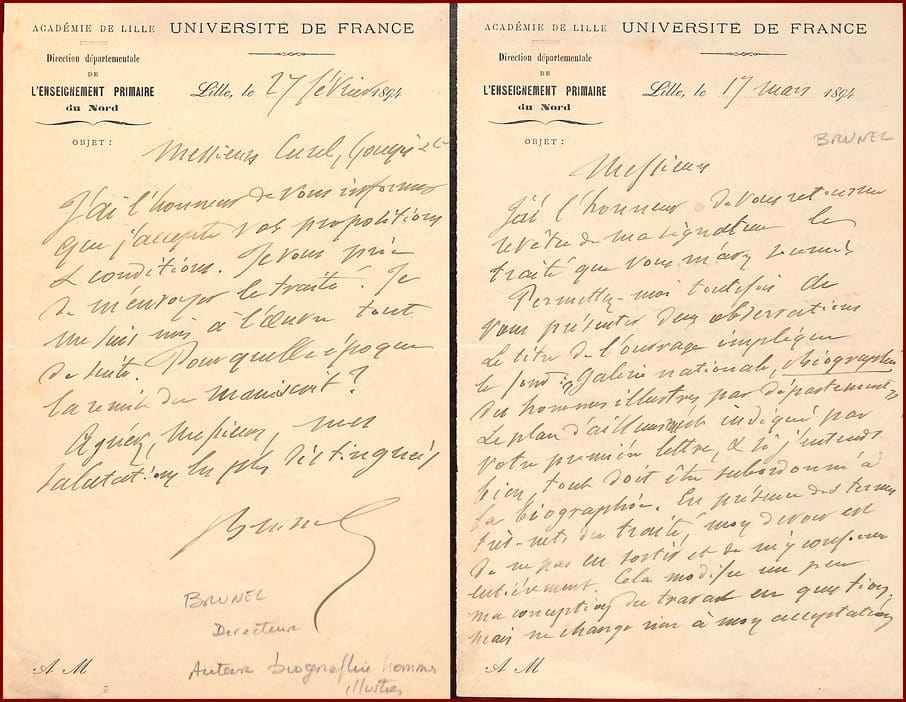 ACADÉMIE DE LILLE
UNIVERSITÉ DE FRANCE
Direction départementale
DE
L'ENSEIGNEMENT PRIMAIRE
du Nord
Lille, le 27 février 1894
OBJET :
Messieurs Curel, Gougis &c
J'ai l'honneur de vous informer
que j'accepte vos propositions
& conditions. Je vous prie
de m'envoyer le traité. Je
me suis mis à l'œuvre tout
de suite. Pour quelle époque
la remise du manuscrit ?
Agréez, Messieurs, mes
salutations les plus distinguées
Brunel
BRUNEL
Directeur
Auteur biographie hommes
illustres
A M
ACADÉMIE DE LILLE
UNIVERSITÉ DE FRANCE
Direction départementale
DE
L'ENSEIGNEMENT PRIMAIRE
du Nord
Lille, le 17 mars 1894
OBJET :
BRUNEL
Messieurs
J'ai l'honneur de vous retourner
revêtu de ma signature le
traité que vous m'avez
Permettez-moi toutefois de
vous présenter deux observations
Le titre de l'ouvrage implique
le fond : Galerie nationale, biographie
des hommes illustres par département
Le plan d'ailleurs indiqué par
votre première lettre, & si j'entends
bien, tout doit être subordonné à
la biographie. En présence des termes
très-nets du traité, mon devoir est
de ne pas en sortir et de m'y conformer
entièrement. Cela modifie un peu
ma conception du travail en question,
mais ne change rien à mon acceptation
A M